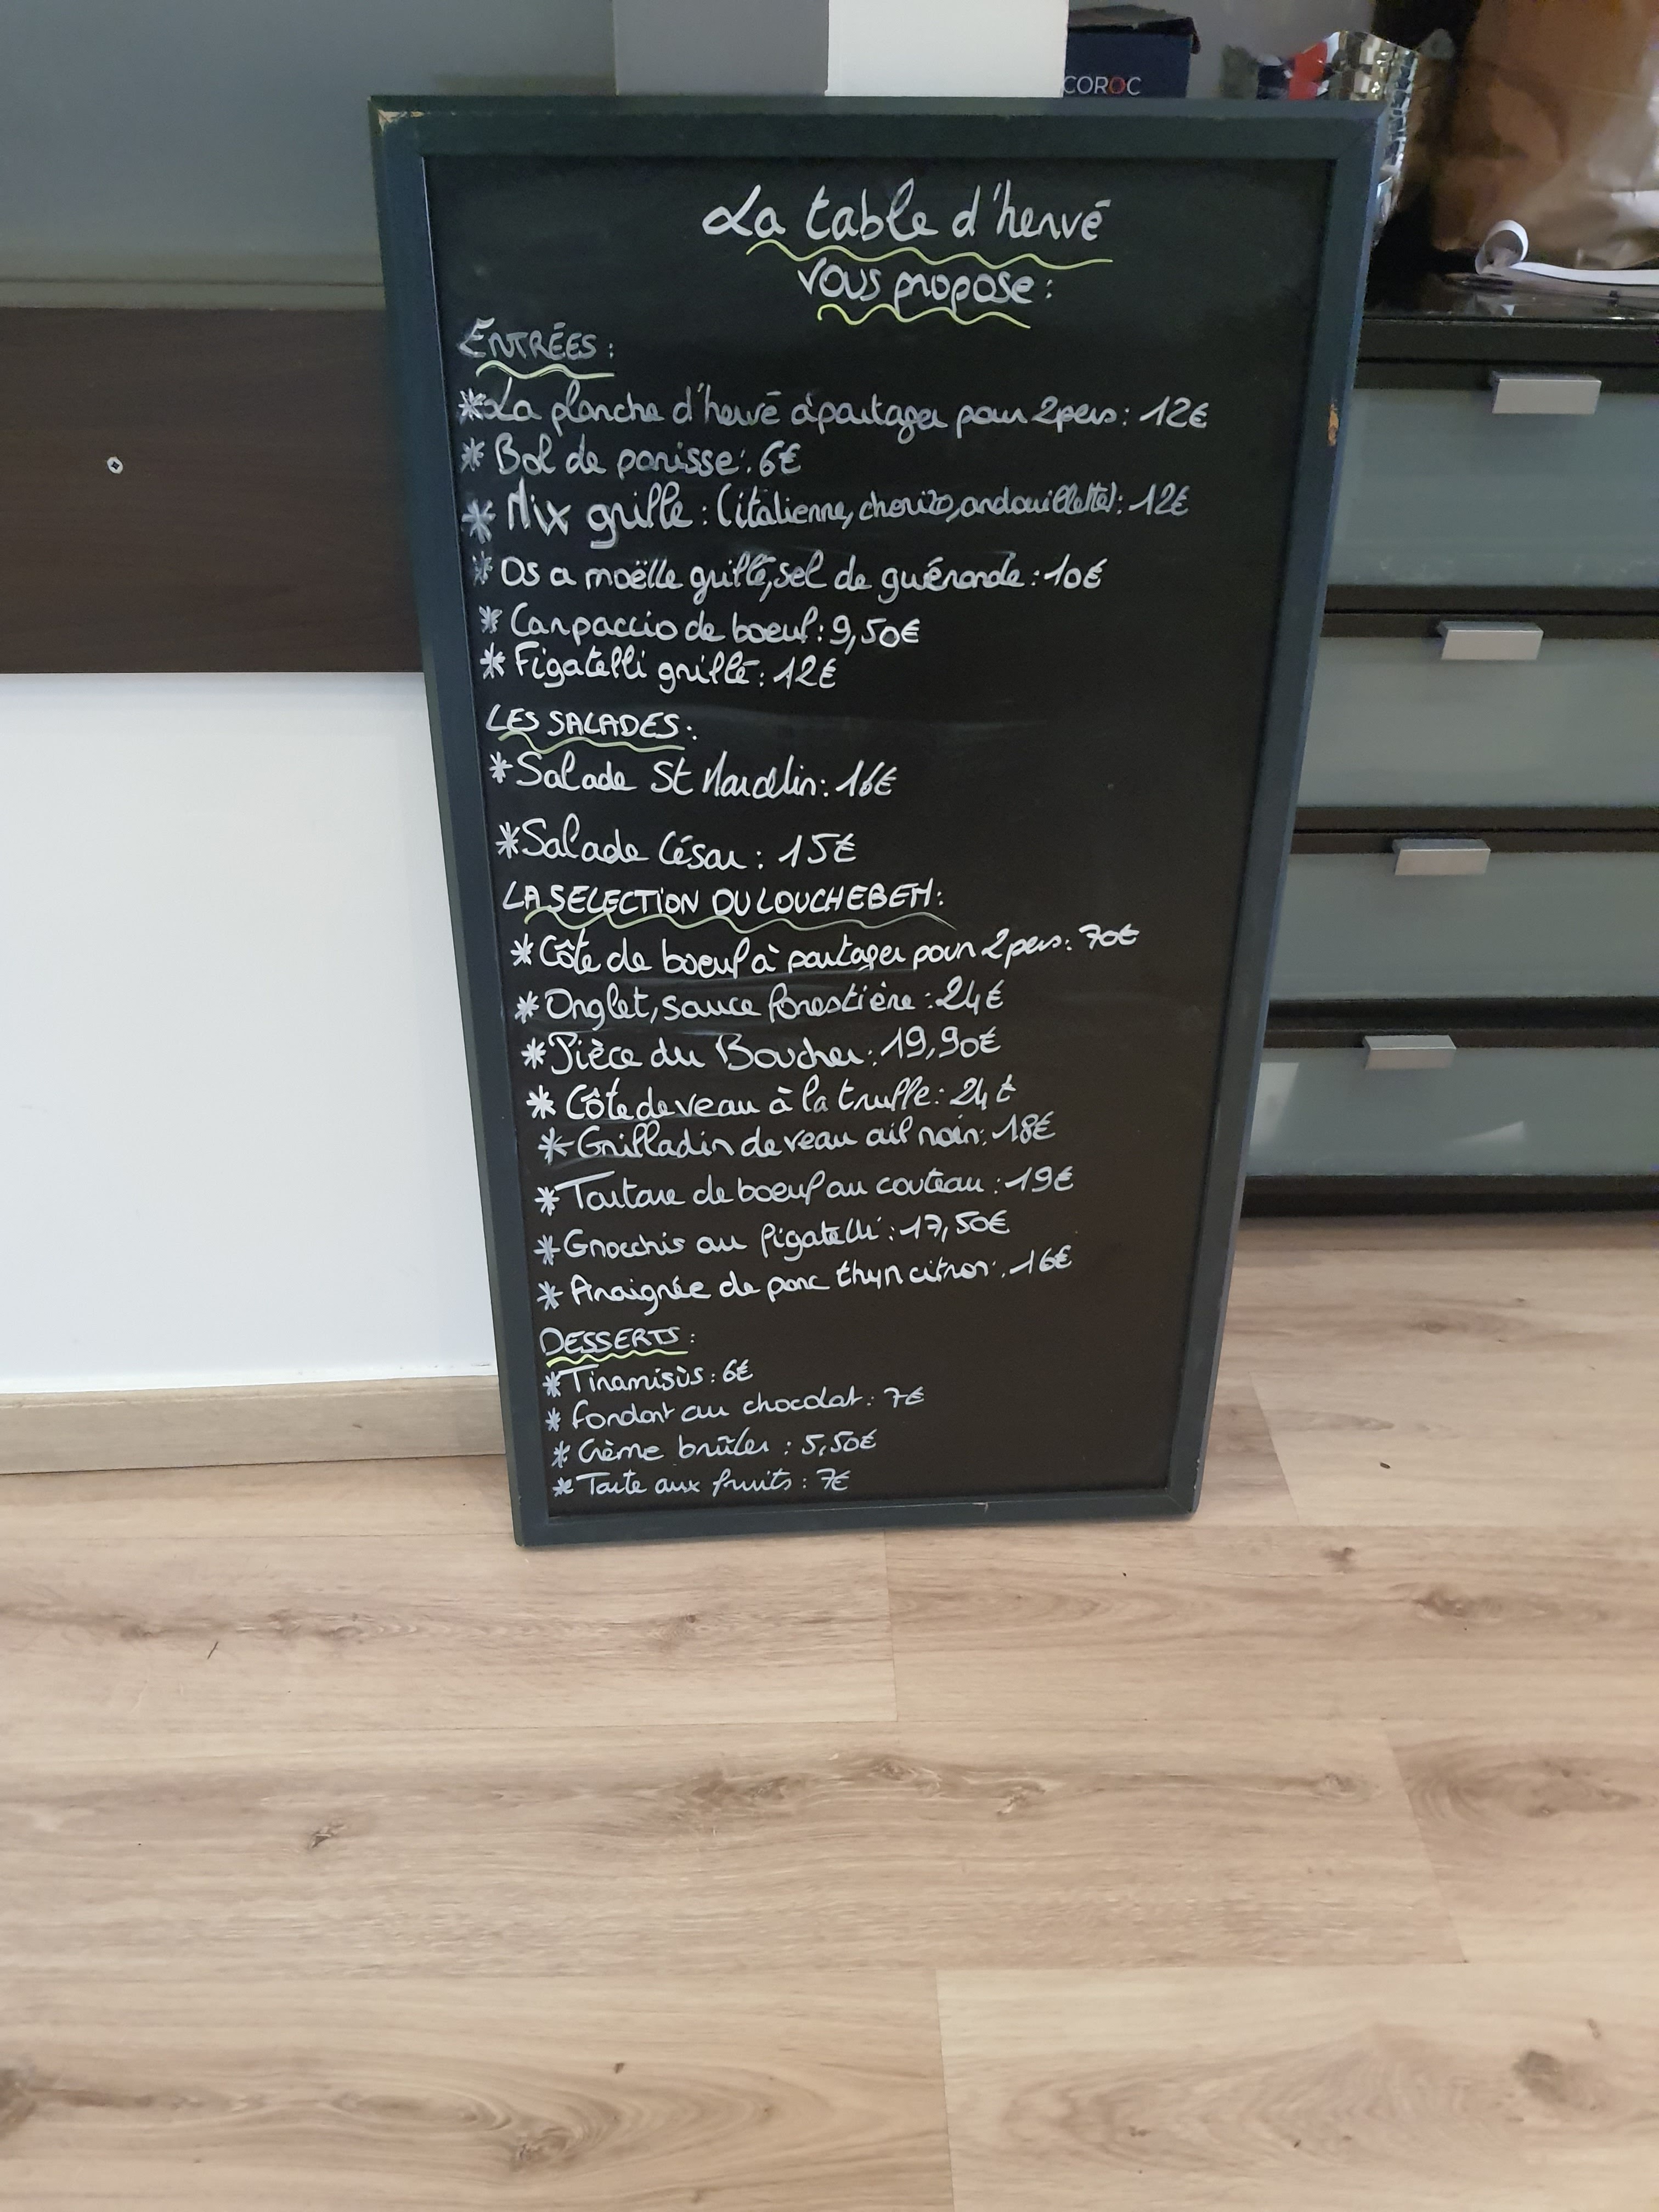 COROC
La table d'hervé
vous propose :
ENTRÉES :
*La planche d'hervé à partager pour 2pers : 12€
* Bol de panisse : 6€
* Mix grille : (italienne, chorizo, andouillette) : 12€
* Os a moëlle grillé, sel de guérande : 10€
* Carpaccio de boeuf : 9,50€
* Figatelli grillé : 12€
LES SALADES :
*Salade St Marcelin : 16€
*Salade César : 15€
LA SELECTION DU LOUCHEBEM :
* Côte de boeuf à partager pour 2pers : 70€
* Onglet, sauce forestière : 24€
* Pièce du Boucher : 19,90€
* Côte de veau à la truffe : 24€
* Grilladin de veau ail noir : 18€
* Tartare de boeuf au couteau : 19€
* Gnocchis au figatelli : 17,50€
* Araignée de porc thym citron : 16€
DESSERTS :
*Tiramisùs : 6€
* fondant au chocolat : 7€
* Crème brûler : 5,50€
* Tarte aux fruits : 7€